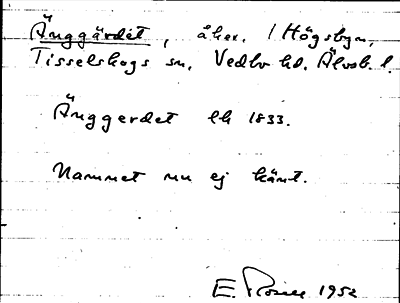 Änggärdet, åker. / Högsbyn,
Tisselskogs sn. Vedbo hd. Älvsb. l.
Änggerdet lh 1833.
Namnet nu ej känt.
E. 1952